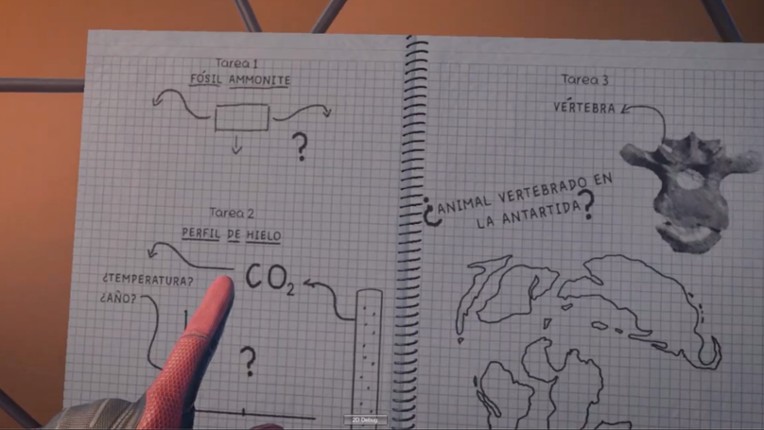 Tarea 1
FÓSIL AMMONITE
?
Tarea 2
PERFIL DE HIELO
CO₂
¿TEMPERATURA?
¿AÑO?
?
Tarea 3
VÉRTEBRA
¿ANIMAL VERTEBRADO EN
LA ANTARTIDA?